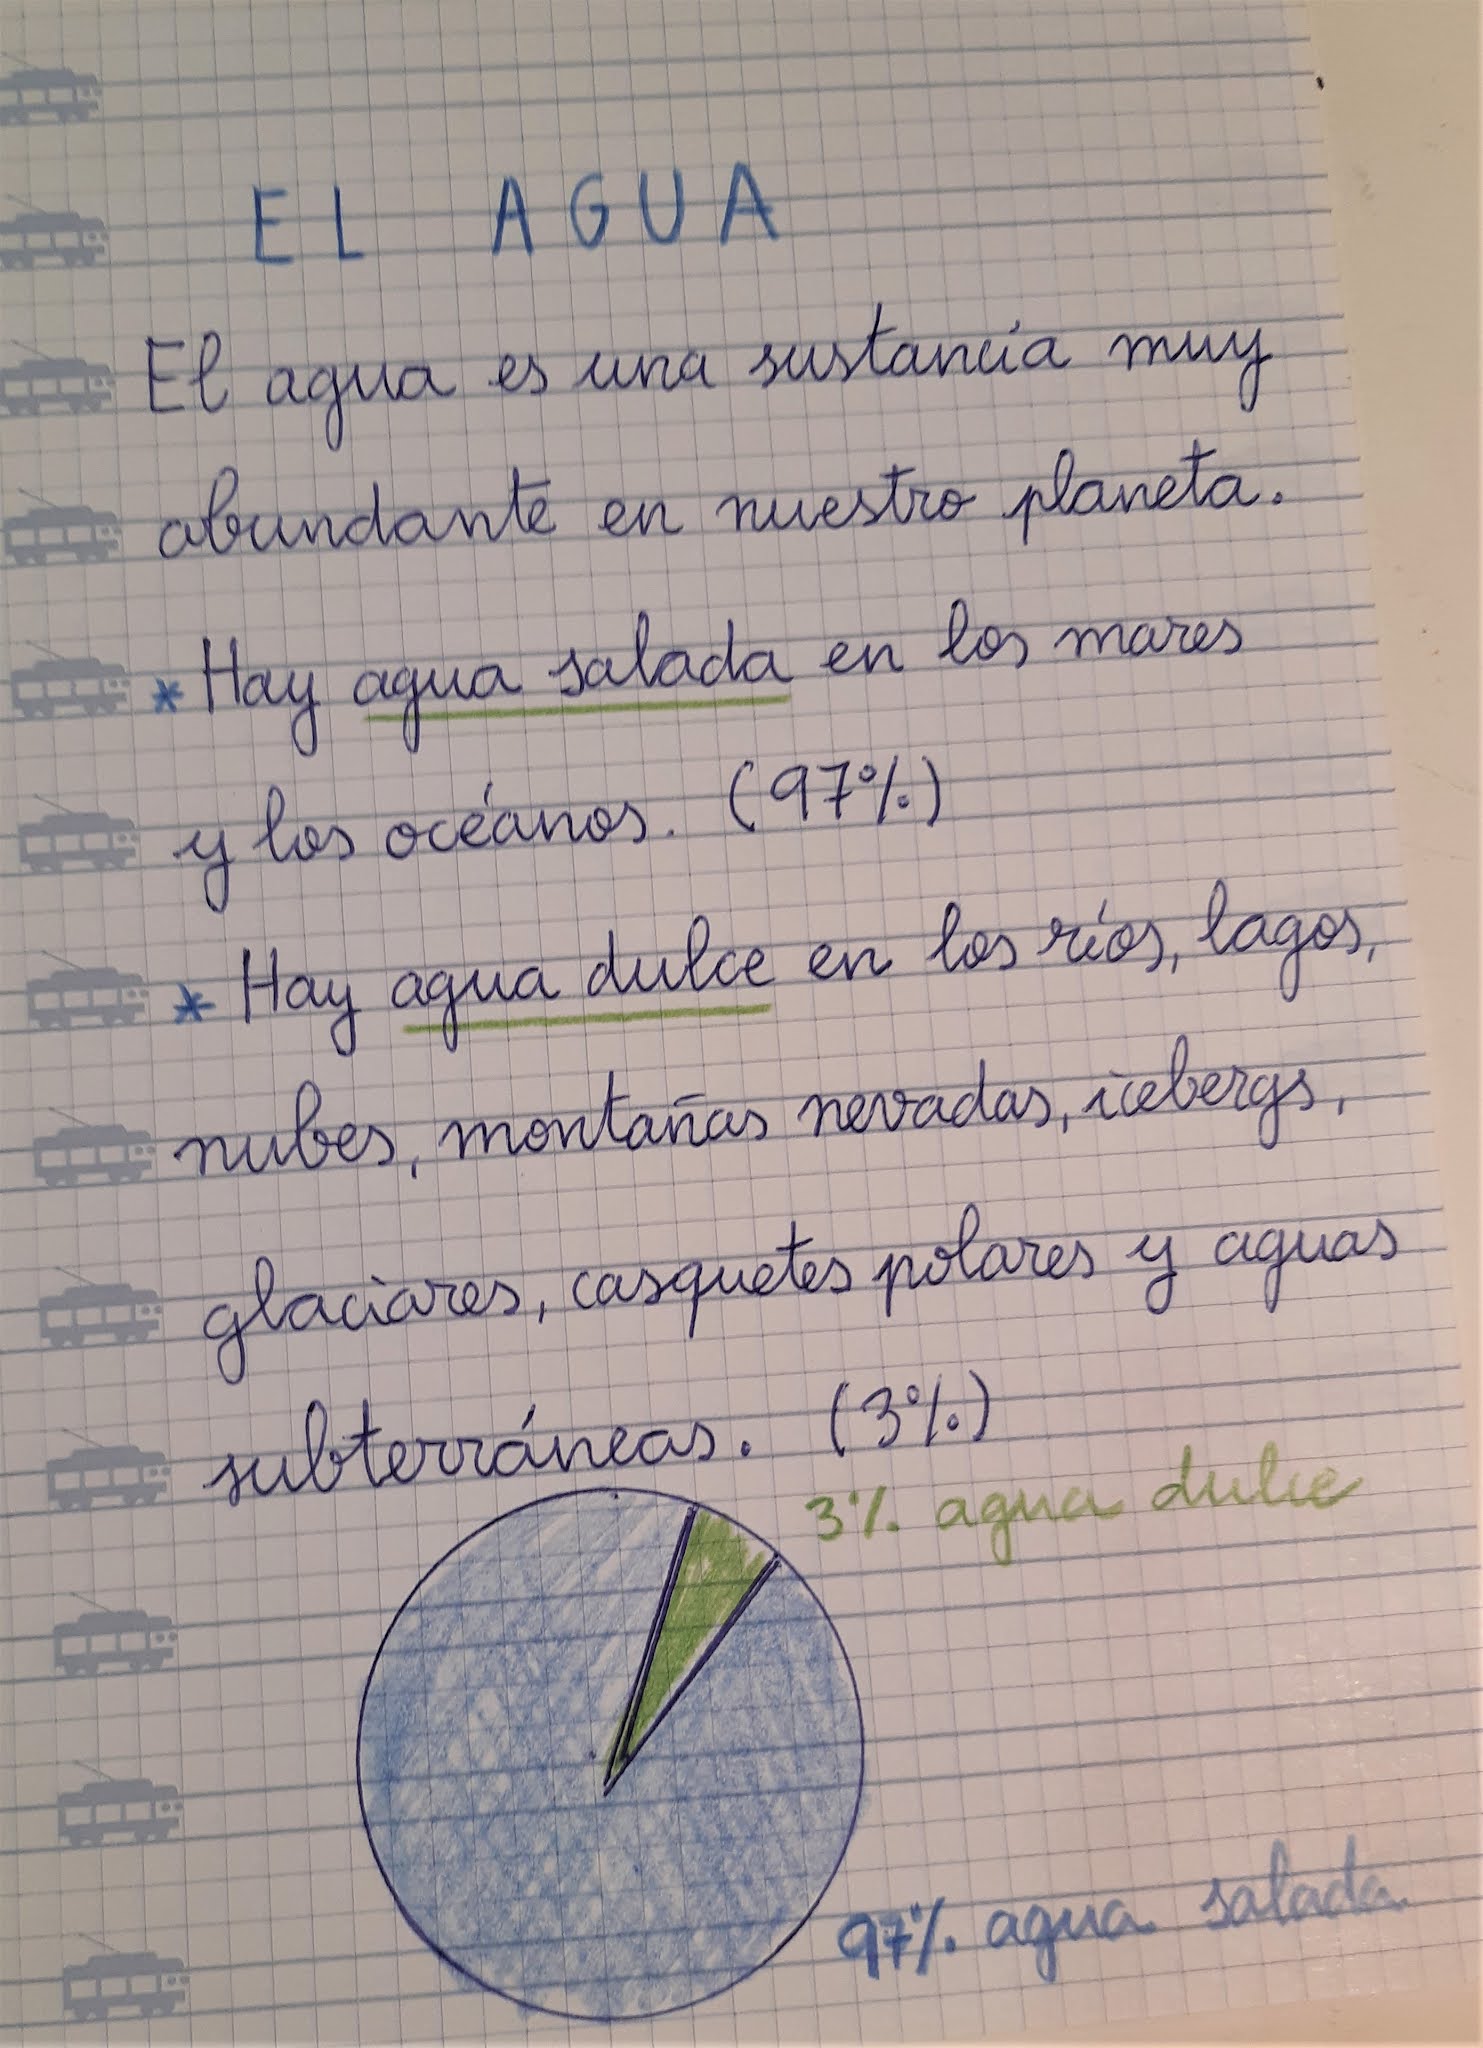 EL AGUA
El agua es una sustancia muy
abundante en nuestro planeta.
* Hay agua salada en los mares
y los océanos. (97%)
* Hay agua dulce en los ríos, lagos,
nubes, montañas nevadas, icebergs,
glaciares, casquetes polares y aguas
subterráneas. (3%)
3% agua dulce
97% agua salada